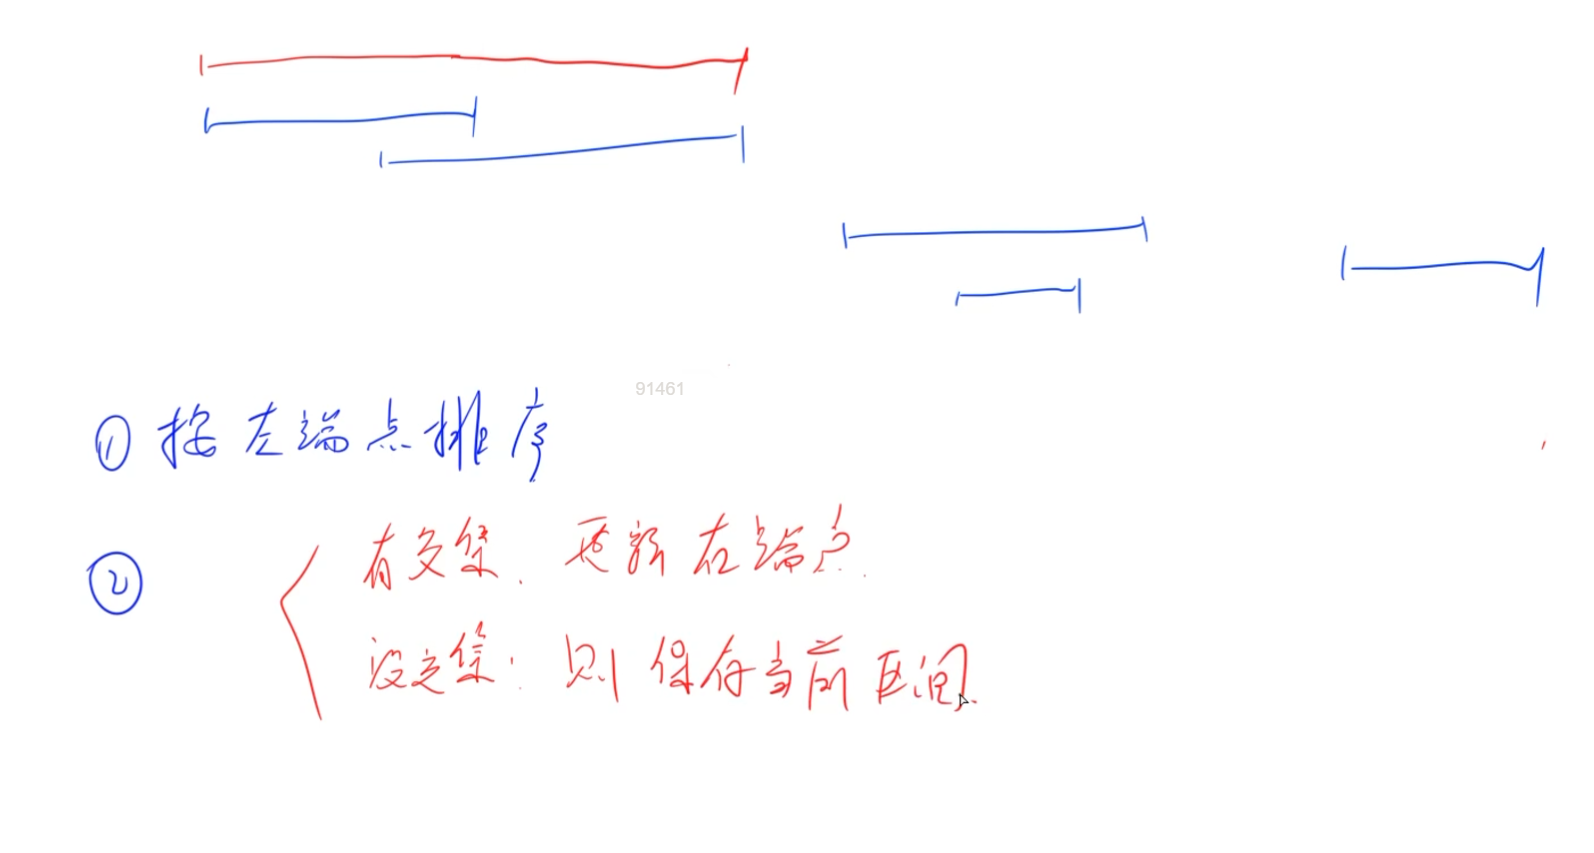 91461
① 按左端点排序
②
有交集. 更新右端点.
没交集: 则保存当前区间.